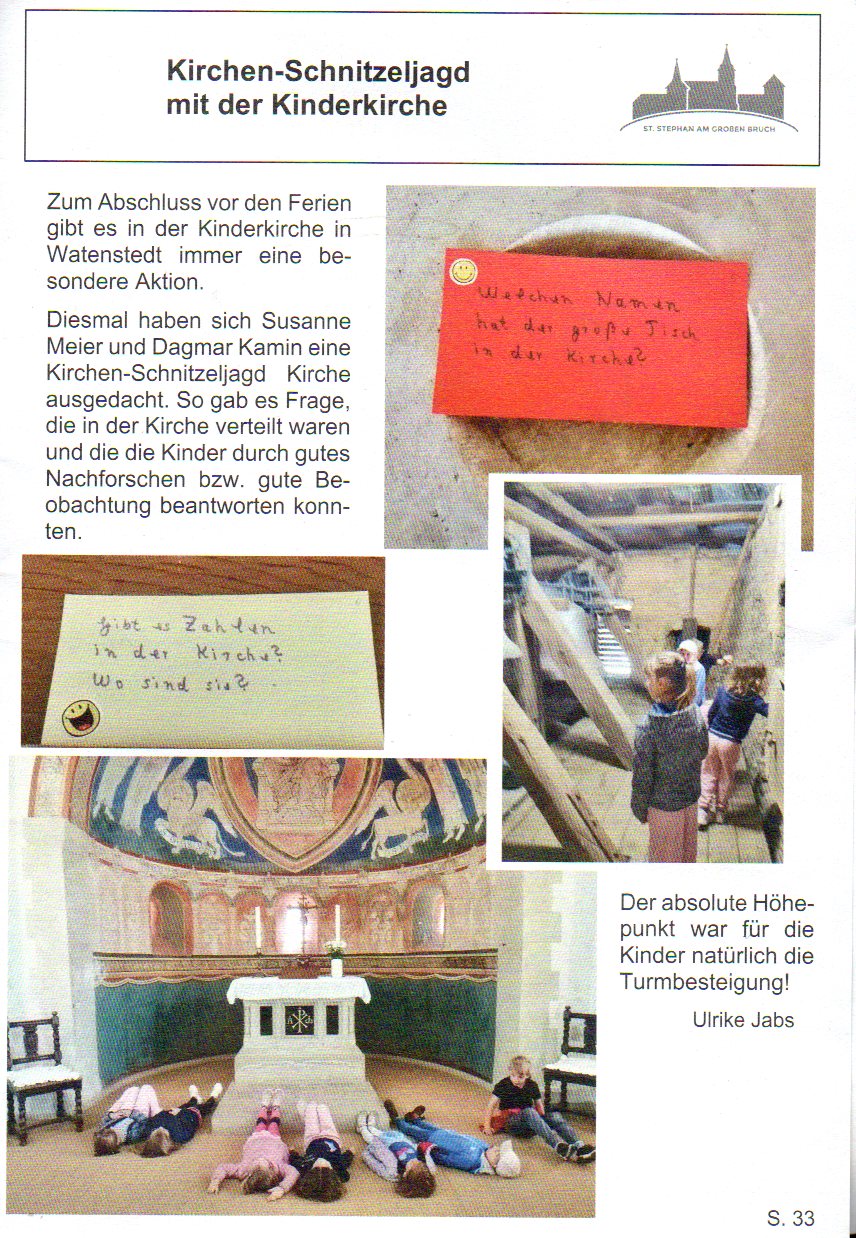 Kirchen-Schnitzeljagd
mit der Kinderkirche
ST. STEPHAN AM GROßEN BRUCH
Zum Abschluss vor den Ferien
gibt es in der Kinderkirche in
Watenstedt immer eine be-
sondere Aktion.
Diesmal haben sich Susanne
Meier und Dagmar Kamin eine
Kirchen-Schnitzeljagd Kirche
ausgedacht. So gab es Frage,
die in der Kirche verteilt waren
und die die Kinder durch gutes
Nachforschen bzw. gute Be-
obachtung beantworten konn-
ten.
Welchen Namen
hat der große Tisch
in der Kirche?
Gibt es Zahlen
in der Kirche?
Wo sind sie?
Der absolute Höhe-
punkt war für die
Kinder natürlich die
Turmbesteigung!
Ulrike Jabs
S. 33